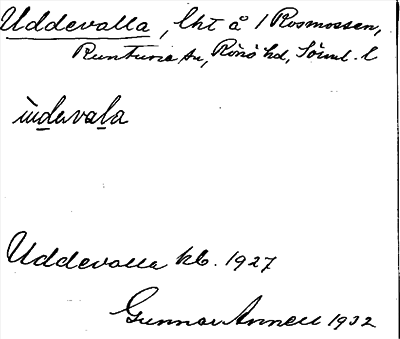 Uddevalla, lht å / Rosmossen,
Runtuna sn, Rönö hd, Söml. l
ùdevala
Uddevalla kb. 1927
Gunnar Annell 1932